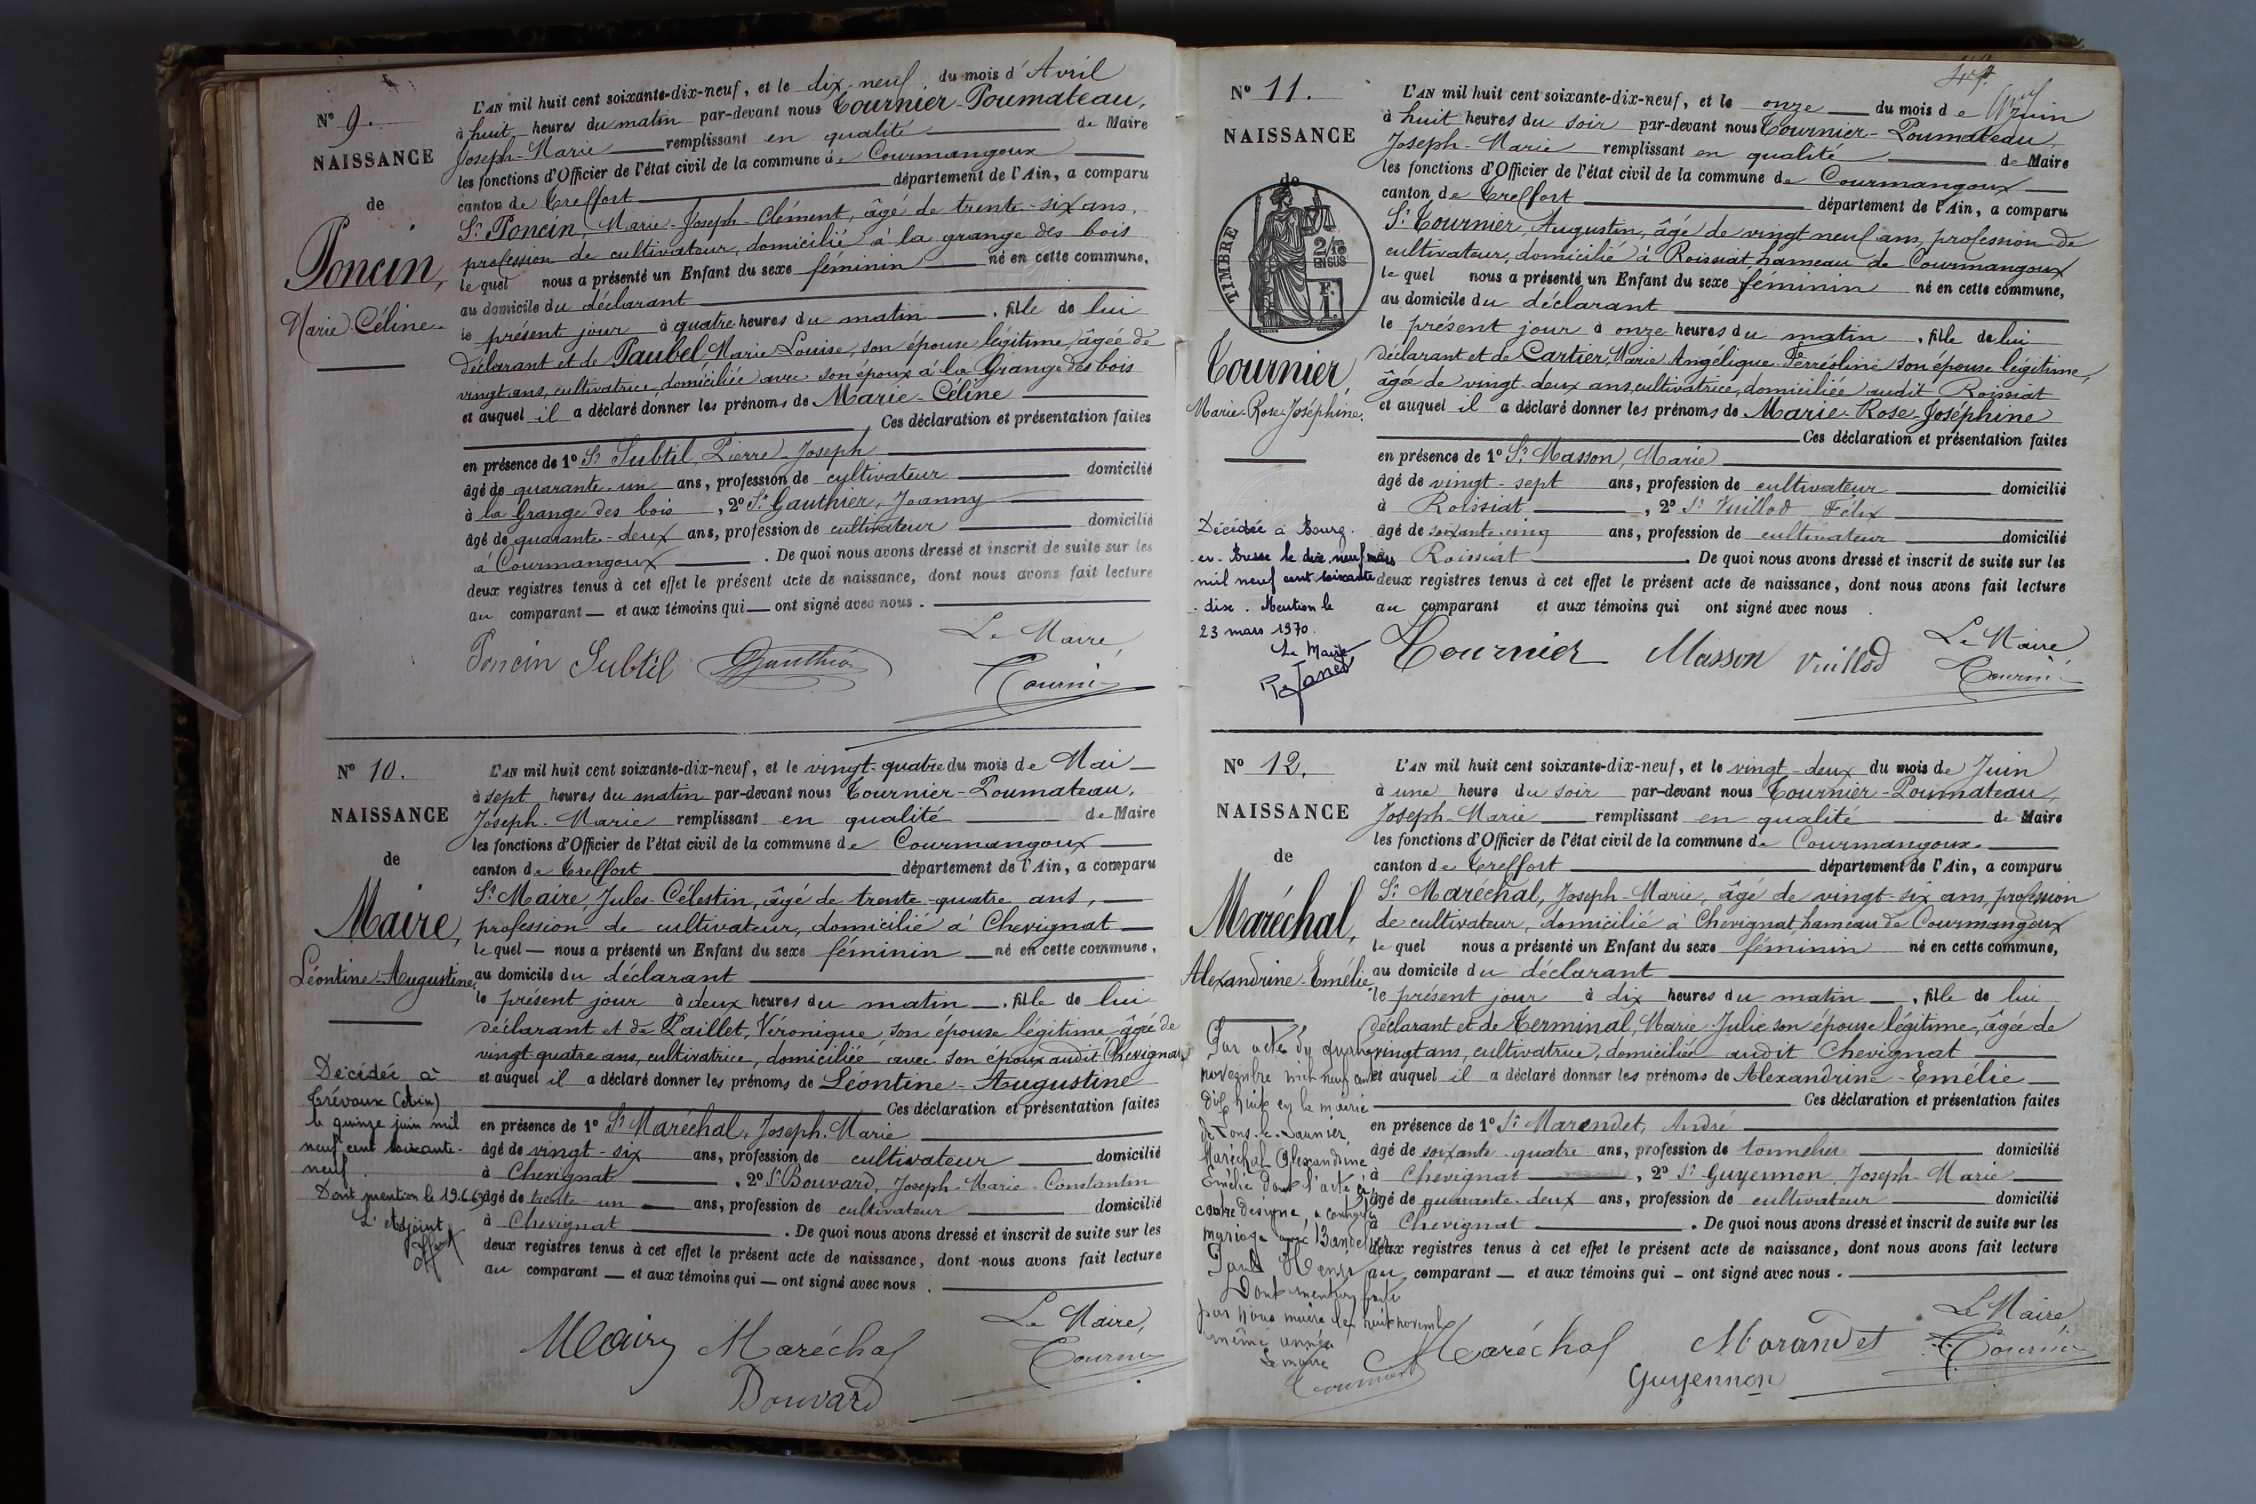 L'AN mil huit cent soixante-dix-neuf, et le dix-neuf du mois d'Avril
N° 9.
à huit heures du matin par-devant nous Tournier-Poumateau,
NAISSANCE
Joseph-Marie remplissant en qualité de Maire
les fonctions d'Officier de l'état civil de la commune de Courmangoux
de
canton de Treffort département de l'Ain, a comparu
Sr. Poncin, Marie-Joseph-Clément, âgé de trente-six ans,
Poncin,
profession de cultivateur, domicilié à la grange des bois
le quel nous a présenté un Enfant du sexe féminin né en cette commune,
au domicile du déclarant
Marie Céline
le présent jour à quatre heures du matin, fille de lui
déclarant et de Paubel, Marie Louise, son épouse légitime, âgée de
vingt ans, cultivatrice, domiciliée avec son époux à la Grange des bois
et auquel il a déclaré donner les prénoms de Marie-Céline
Ces déclaration et présentation faites
en présence de 1° Sr. Subtil, Pierre-Joseph
âgé de quarante-un ans, profession de cultivateur domicilié
à la Grange des bois, 2° Sr. Gauthier, Joanny
âgé de quarante-deux ans, profession de cultivateur domicilié
à Courmangoux. De quoi nous avons dressé et inscrit de suite sur les
deux registres tenus à cet effet le présent acte de naissance, dont nous avons fait lecture
au comparant et aux témoins qui ont signé avec nous.
Le Maire,
Poncin Subtil Gauthier
Tourni
N° 10.
L'AN mil huit cent soixante-dix-neuf, et le vingt-quatre du mois de Mai
à sept heures du matin par-devant nous Tournier-Poumateau,
NAISSANCE
Joseph-Marie remplissant en qualité de Maire
les fonctions d'Officier de l'état civil de la commune de Courmangoux
de
canton de Treffort département de l'Ain, a comparu
Sr. Maire, Jules-Célestin, âgé de trente-quatre ans,
Maire,
profession de cultivateur, domicilié à Chevignat
le quel nous a présenté un Enfant du sexe féminin né en cette commune,
Léontine-Augustine,
au domicile du déclarant
le présent jour à deux heures du matin, fille de lui
déclarant et de Paillet, Véronique, son épouse légitime âgée de
vingt-quatre ans, cultivatrice, domiciliée avec son époux audit Chevignat
et auquel il a déclaré donner les prénoms de Léontine-Augustine
Ces déclaration et présentation faites
en présence de 1° Sr. Maréchal, Joseph-Marie
âgé de vingt-six ans, profession de cultivateur domicilié
à Chevignat, 2° Sr. Bouvard, Joseph-Marie-Constantin
âgé de trente un ans, profession de cultivateur domicilié
à Chevignat. De quoi nous avons dressé et inscrit de suite sur les
deux registres tenus à cet effet le présent acte de naissance, dont nous avons fait lecture
au comparant et aux témoins qui ont signé avec nous.
Décédée à
Trévoux (Ain)
le quinze juin mil
neuf cent soixante-
neuf
Dont mention le 19.6.69
L'adjoint
Le Maire,
Maire Maréchal
Tournier
Bouvard
N° 11.
L'AN mil huit cent soixante-dix-neuf, et le onze du mois de Juin
à huit heures du soir par-devant nous Tournier-Poumateau,
NAISSANCE
Joseph-Marie remplissant en qualité de Maire
les fonctions d'Officier de l'état civil de la commune de Courmangoux
de
canton de Treffort département de l'Ain, a comparu
Sr. Tournier, Augustin, âgé de vingt neuf ans, profession de
TIMBRE
cultivateur, domicilié à Roissiat, hameau de Courmangoux
2/10 EN SUS
le quel nous a présenté un Enfant du sexe féminin né en cette commune,
au domicile du déclarant
le présent jour à onze heures du matin, fille de lui
déclarant et de Cartier, Marie Angélique Ferréoline son épouse légitime,
Tournier,
âgée de vingt-deux ans, cultivatrice, domiciliée audit Roissiat
Marie-Rose-Joséphine.
et auquel il a déclaré donner les prénoms de Marie-Rose-Joséphine
Ces déclaration et présentation faites
en présence de 1° Sr. Masson, Marie
âgé de vingt-sept ans, profession de cultivateur domicilié
à Roissiat, 2° Sr. Vuillod Félix
âgé de soixante-cinq ans, profession de cultivateur domicilié
à Roissiat. De quoi nous avons dressé et inscrit de suite sur les
deux registres tenus à cet effet le présent acte de naissance, dont nous avons fait lecture
au comparant et aux témoins qui ont signé avec nous.
Décédée à Bourg-
en-Bresse le dix neuf mars
mil neuf cent soixante
dix. Mention le
23 mars 1970.
Le Maire
Le Maire
Tournier Masson Vuillod
Tourni
N° 12.
L'AN mil huit cent soixante-dix-neuf, et le vingt-deux du mois de Juin
à une heure du soir par-devant nous Tournier-Poumateau,
NAISSANCE
Joseph-Marie remplissant en qualité de Maire
les fonctions d'Officier de l'état civil de la commune de Courmangoux
de
canton de Treffort département de l'Ain, a comparu
Sr. Maréchal, Joseph-Marie, âgé de vingt-six ans, profession
Maréchal,
de cultivateur, domicilié à Chevignat hameau de Courmangoux
le quel nous a présenté un Enfant du sexe féminin né en cette commune,
Alexandrine-Emélie
au domicile du déclarant
le présent jour à dix heures du matin, fille de lui
déclarant et de Terminal, Marie-Julie son épouse légitime, âgée de
vingt ans, cultivatrice, domiciliée audit Chevignat
et auquel il a déclaré donner les prénoms de Alexandrine-Emélie
Ces déclaration et présentation faites
en présence de 1° Sr. Marandet, André
âgé de soixante-quatre ans, profession de tonnelier domicilié
à Chevignat, 2° Sr. Guyennon, Joseph-Marie
âgé de quarante-deux ans, profession de cultivateur domicilié
à Chevignat. De quoi nous avons dressé et inscrit de suite sur les
deux registres tenus à cet effet le présent acte de naissance, dont nous avons fait lecture
au comparant et aux témoins qui ont signé avec nous.
Par acte du
novembre mil neuf cent
dix huit en la mairie
de Lons-le-Saunier,
Maréchal Alexandrine
Emélie dont l'acte ci
contre désigné, a contracté
mariage avec
Paul Henri
Dont mention faite
par nous maire le huit novembre
même année
Le maire
Tournier
Le Maire
Maréchal Marandet
Tournier
Guyennon